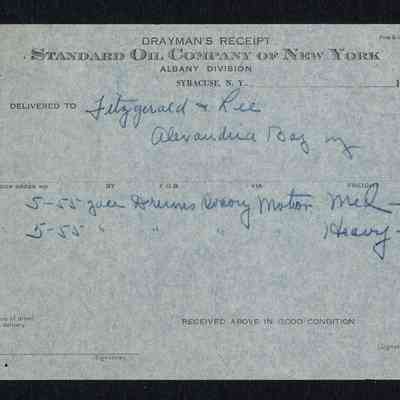 DRAYMAN'S RECEIPT
STANDARD OIL COMPANY OF NEW YORK
ALBANY DIVISION
SYRACUSE, N. Y.
DELIVERED TO Fitzgerald & Lee
Alexandria Bay ny
BY F.O.B. VIA FREIGHT
5-55 Drums Motor Med -
5-55 " " " " Heavy -
delivery
RECEIVED ABOVE IN GOOD CONDITION
(Signature)